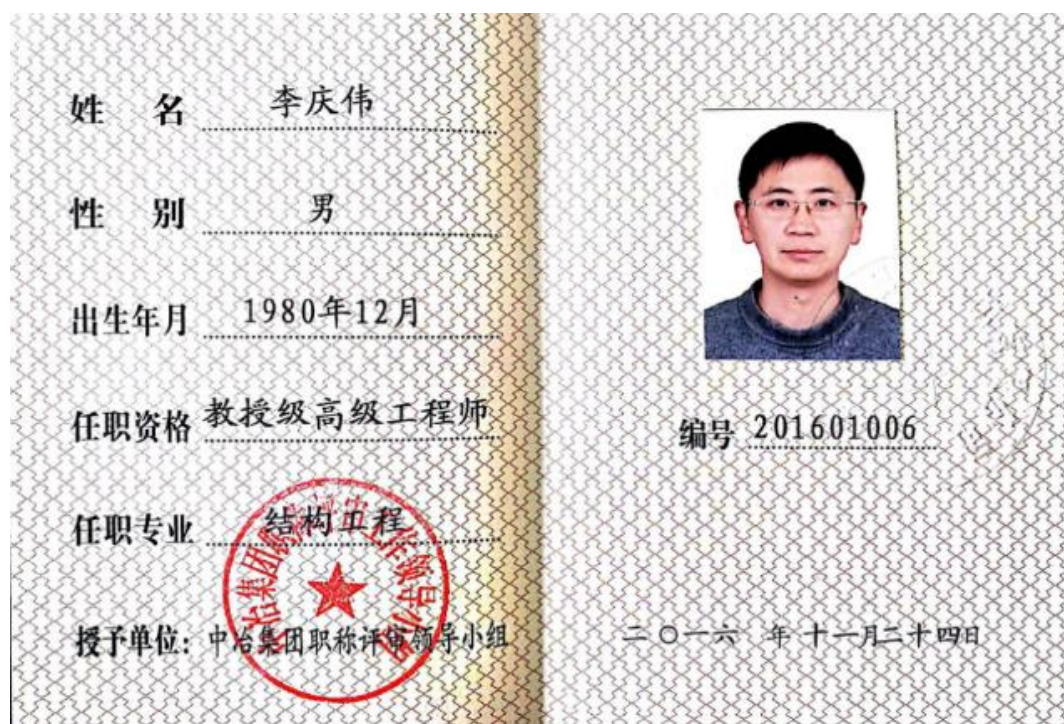 姓 名 李庆伟
性 别 男
出生年月 1980年12月
任职资格 教授级高级工程师
任职专业 结构工程
授予单位：中冶集团职称评审领导小组
编号 201601006
二〇一六 年 十一月二十四日